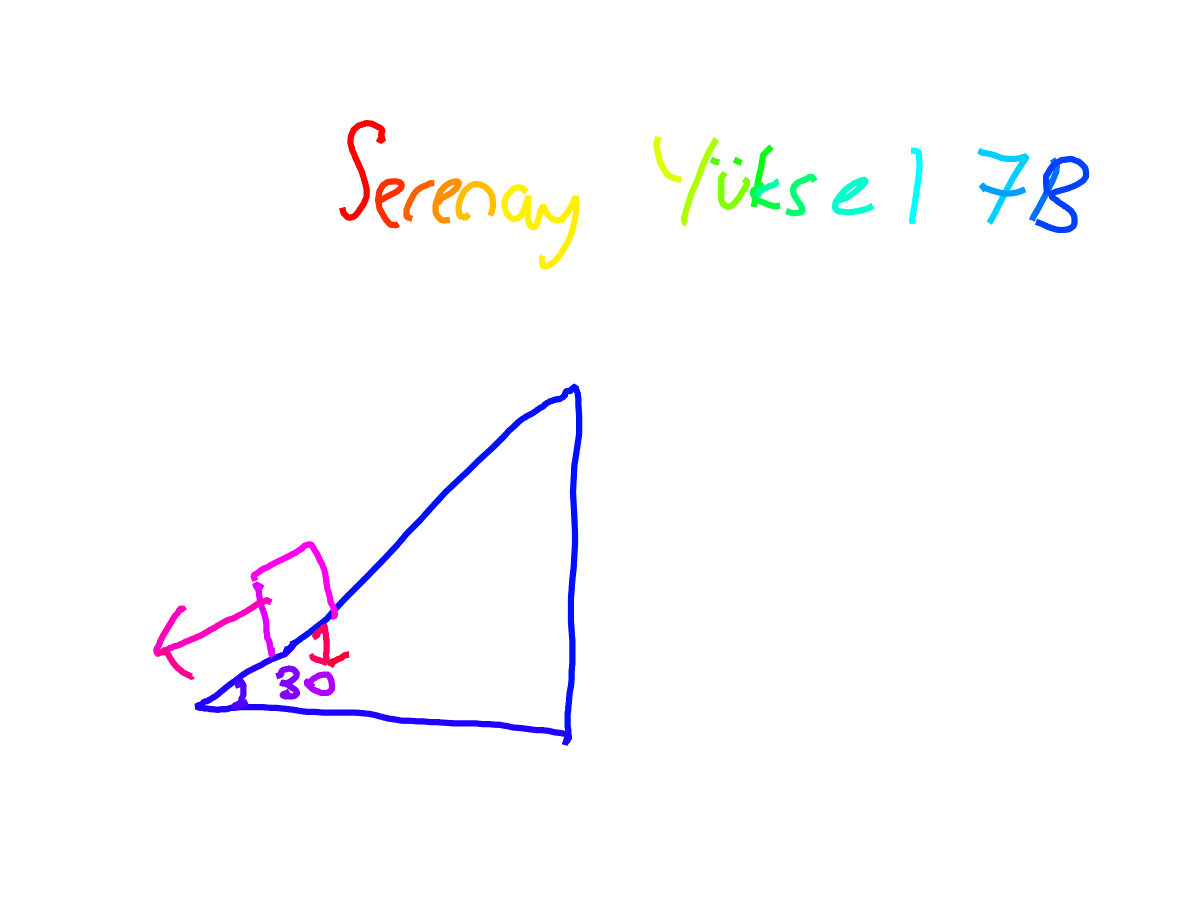 Serenay Yüksel 7B
30